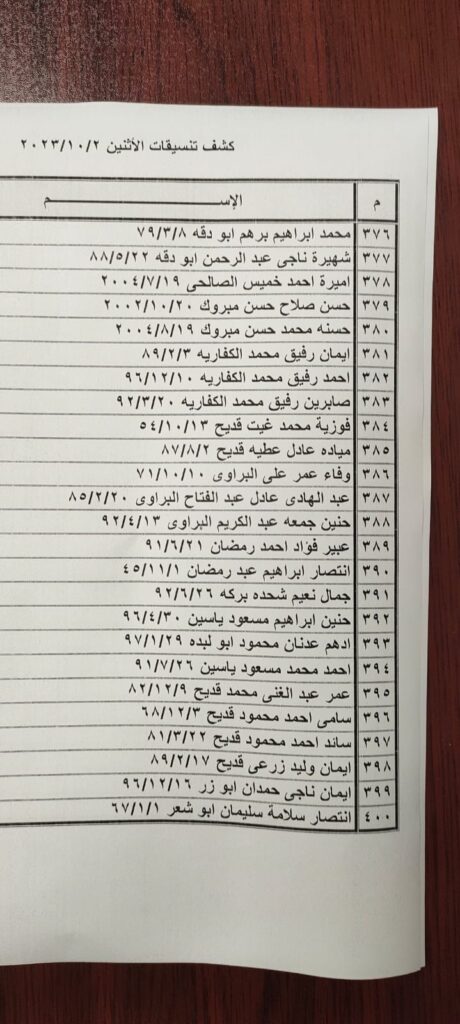 كشف تنسيقات الأثنين ٢٠٢٣/١٠/٢
م الإســـــــــــــــــم
٣٧٦ محمد ابراهيم برهم ابو دقه ٧٩/٣/٨
٣٧٧ شهيرة ناجى عبد الرحمن ابو دقه ٨٨/٥/٢٢
٣٧٨ اميرة احمد خميس الصالحى ٢٠٠٤/٧/١٩
٣٧٩ حسن صلاح حسن مبروك ٢٠٠٢/١٠/٢٠
٣٨٠ حسنه محمد حسن مبروك ٢٠٠٤/٨/١٩
٣٨١ ايمان رفيق محمد الكفاريه ٨٩/٢/٣
٣٨٢ احمد رفيق محمد الكفاريه ٩٦/١٢/١٠
٣٨٣ صابرين رفيق محمد الكفاريه ٩٢/٣/٢٠
٣٨٤ فوزية محمد غيت قديح ٥٤/١٠/١٣
٣٨٥ مياده عادل عطيه قديح ٨٧/٨/٢
٣٨٦ وفاء عمر على البراوى ٧١/١٠/١٠
٣٨٧ عبد الهادى عادل عبد الفتاح البراوى ٨٥/٢/٢٠
٣٨٨ حنين جمعه عبد الكريم البراوى ٩٢/٤/١٣
٣٨٩ عبير فؤاد احمد رمضان ٩١/٦/٢١
٣٩٠ انتصار ابراهيم عبد رمضان ٤٥/١١/١
٣٩١ جمال نعيم شحده بركه ٩٢/٦/٢٦
٣٩٢ حنين ابراهيم مسعود ياسين ٩٦/٤/٣٠
٣٩٣ ادهم عدنان محمود ابو لبده ٩٧/١/٢٩
٣٩٤ احمد محمد مسعود ياسين ٩١/٧/٢٦
٣٩٥ عمر عبد الغنى محمد قديح ٨٢/١٢/٩
٣٩٦ سامى احمد محمود قديح ٦٨/١٢/٣
٣٩٧ سائد احمد محمود قديح ٨١/٣/٢٢
٣٩٨ ايمان وليد زرعى قديح ٨٩/٢/١٧
٣٩٩ ايمان ناجى حمدان ابو زر ٩٦/١٢/١٦
٤٠٠ انتصار سلامة سليمان ابو شعر ٦٧/١/١